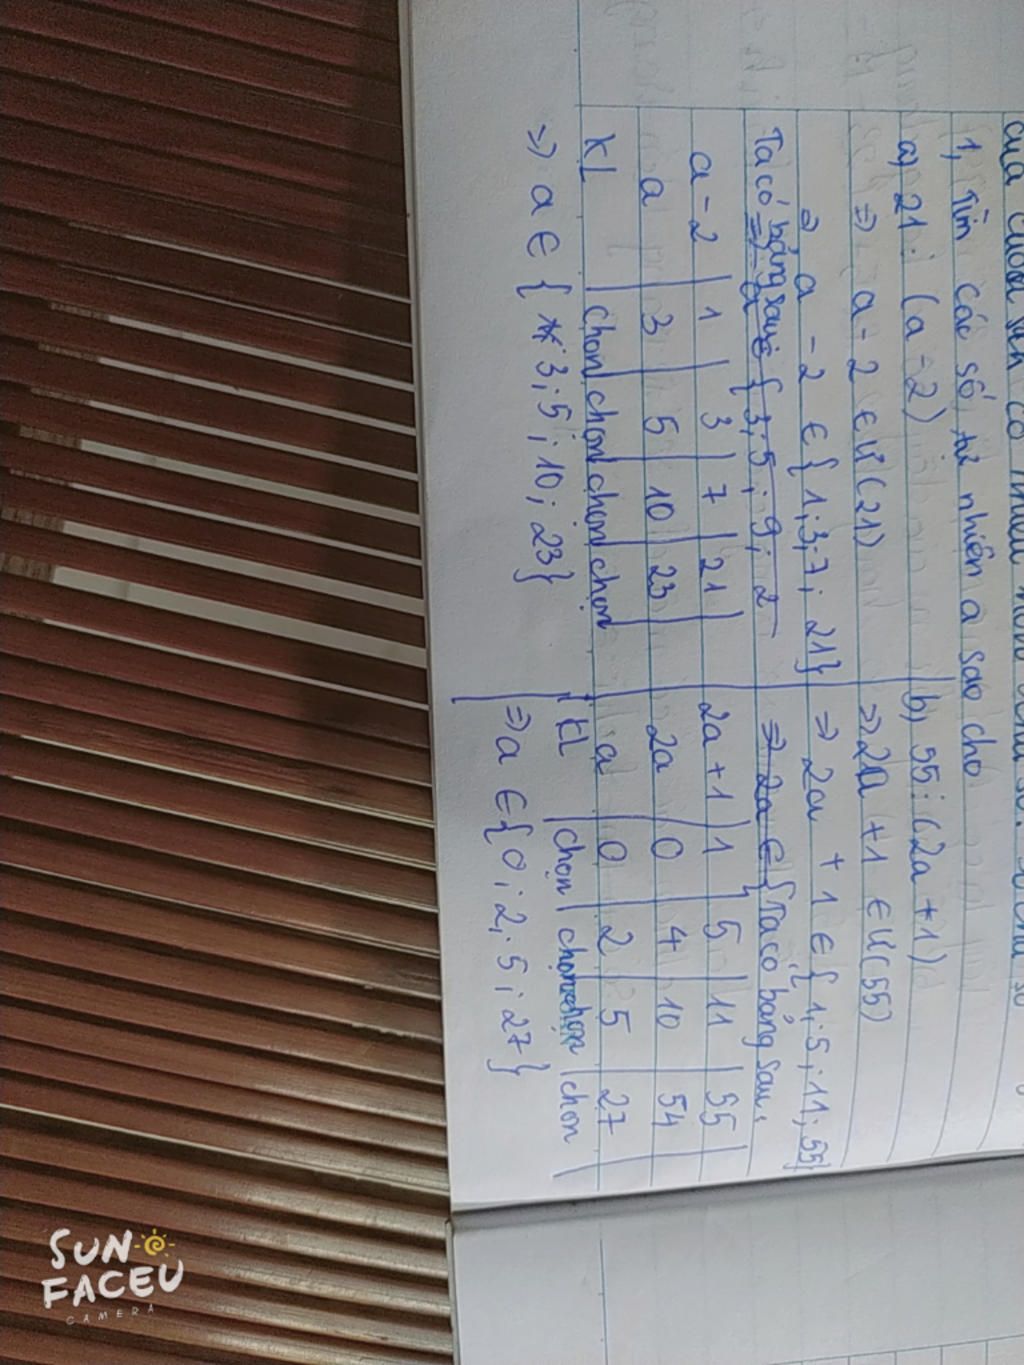 1, Tìm các số tự nhiên a sao cho
a) 21 : (a - 2)
=> a - 2 ∈ Ư(21)
=> a - 2 ∈ {1; 3; 7; 21}
Ta có bảng sau: => a ∈ {3; 5; 9; 2
a - 2 | 1 | 3 | 7 | 21 |
a 3 5 10 23
KL | chọn chọn chọn chọn
=> a ∈ {3; 5; 10; 23}
b) 55 : (2a + 1)
=> 2a + 1 ∈ Ư(55)
=> 2a + 1 ∈ {1; 5; 11; 55}
=> 2a ∈ { Ta có bảng sau:
2a + 1 | 1 | 5 | 11 | 55
2a 0 4 10 54
a 0 2 5 27
KL | chọn | chọn chọn | chọn
=> a ∈ {0; 2; 5; 27}
SUN
FACEU
CAMERA